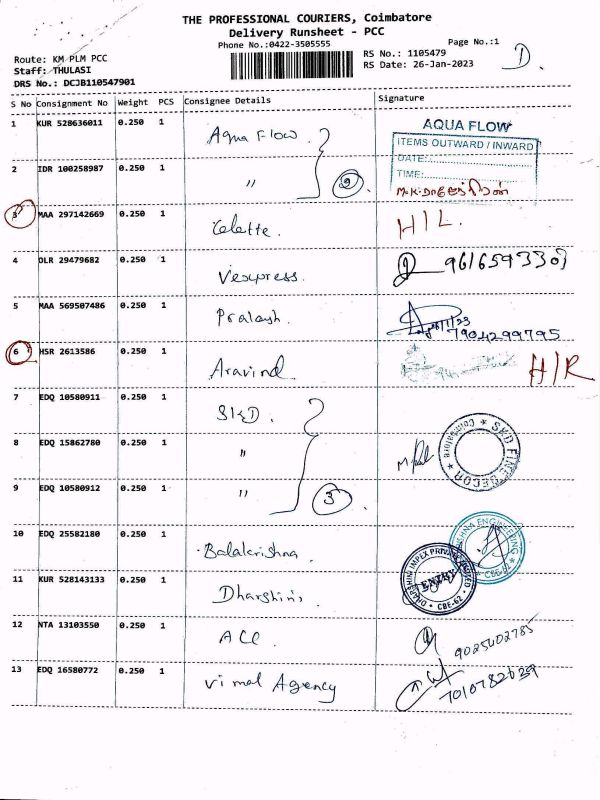 THE PROFESSIONAL COURIERS, Coimbatore
Delivery Runsheet - PCC
Phone No.:0422-3505555
Page No.:1
Route: KM PLM PCC
RS No.: 1105479
D.
Staff: THULASI
RS Date: 26-Jan-2023
DRS No.: DCJB110547901
S No Consignment No Weight PCS Consignee Details Signature
1 KUR 528636011 0.250 1 Aqua Flow. AQUA FLOW
ITEMS OUTWARD / INWARD
DATE:
2 IDR 100258987 0.250 1 " 2 TIME:
3 MAA 297142669 0.250 1 Celette. H/L.
4 DLR 29479682 0.250 1 Vexpress. 9616593303
5 MAA 569507486 0.250 1 7904299795
6 HSR 2613586 0.250 1 Aravind. H/R
7 EDQ 10580911 0.250 1 SKD.
8 EDQ 15862780 0.250 1 " SKD FINE DECOR * Coimbatore *
9 EDQ 10580912 0.250 1 " 3
10 EDQ 25582180 0.250 1 Balakrishna. ENGINEERING
11 KUR 528143133 0.250 1 Dharshini. DHARSHINI IMPEX PRIVATE LIMITED * CBE-62 * ENTRY
12 NTA 13103550 0.250 1 ACC. 9025002785
13 EDQ 16580772 0.250 1 Vimal Agency 7010782639